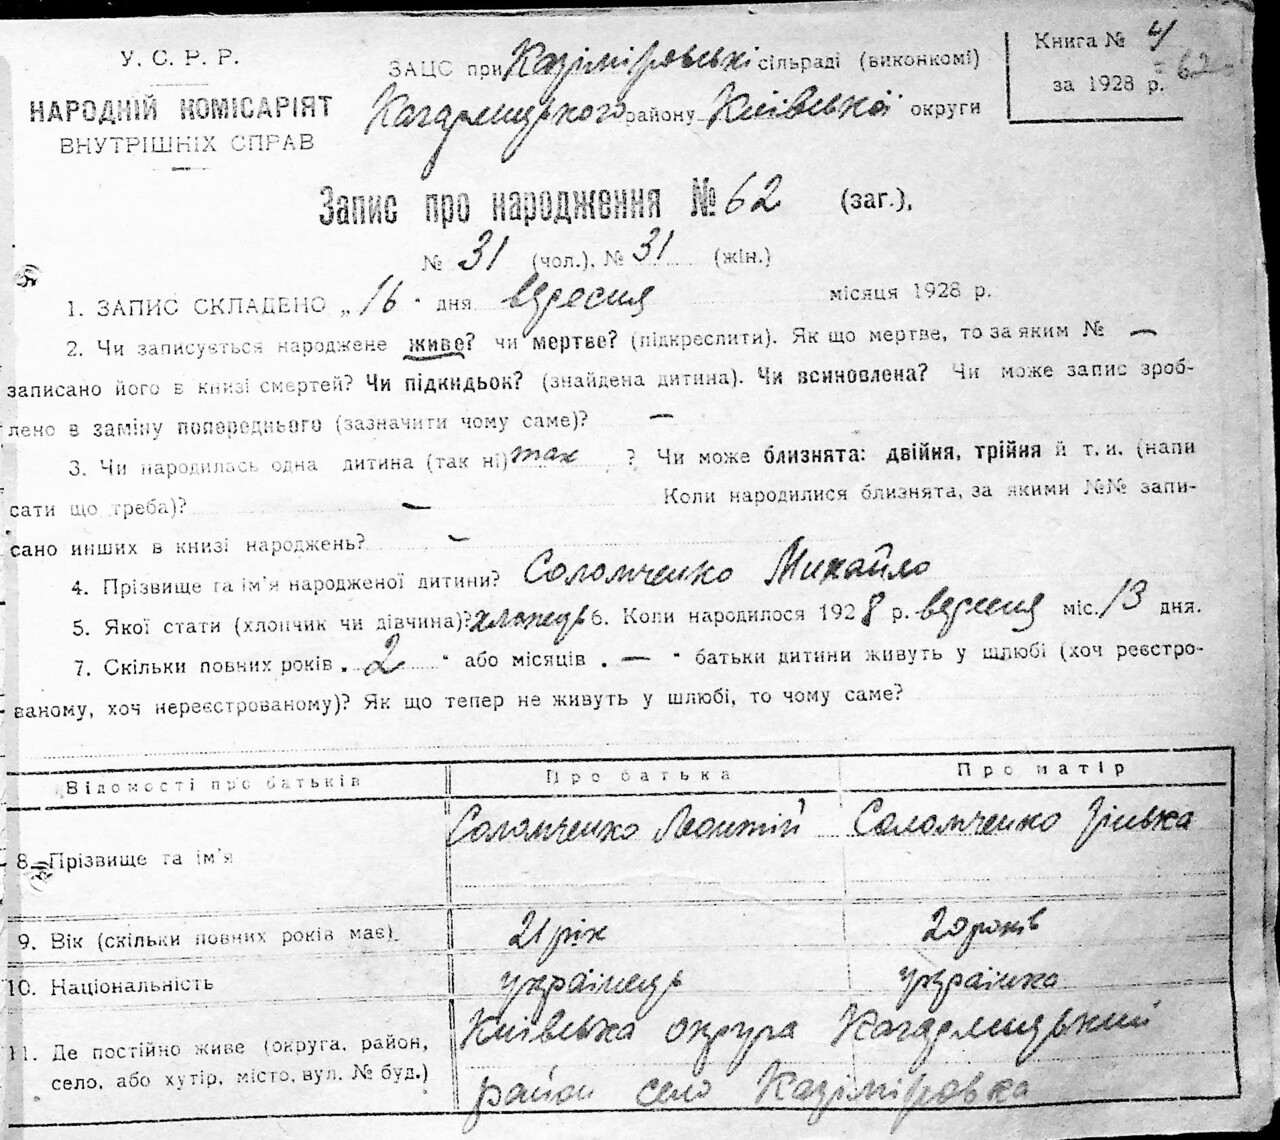 У. С. Р. Р.
НАРОДНІЙ КОМІСАРІЯТ
ВНУТРІШНІХ СПРАВ
ЗАЦС при Казіміровські сільраді (виконкомі)
Кагарлицького району Київської округи
Книга № 4
62
за 1928 р.
Запис про народження № 62 (заг.),
№ 31 (чол.), № 31 (жін.)
1. ЗАПИС СКЛАДЕНО „16" дня вересня місяця 1928 р.
2. Чи записується народжене живе? чи мертве? (підкреслити). Як що мертве, то за яким № —
записано його в книзі смертей? Чи підкидьок? (знайдена дитина). Чи всиновлена? Чи може запис зроб-
лено в заміну попереднього (зазначити чому саме)? —
3. Чи народилась одна дитина (так ні) так ? Чи може близнята: двійня, трійня й т. и. (напи
сати що треба)? — Коли народилися близнята, за якими №№ запи-
сано инших в книзі народжень? —
4. Прізвище та ім'я народженої дитини? Соломченко Михайло
5. Якої стати (хлопчик чи дівчина)? хлопець 6. Коли народилося 1928 р. вересня міс. 13 дня.
7. Скільки повних років „2" або місяців „—" батьки дитини живуть у шлюбі (хоч реєстро-
ваному, хоч нереєстрованому)? Як що тепер не живуть у шлюбі, то чому саме?
Відомості про батьків Про батька Про матір
8. Прізвище та ім'я Соломченко Леонтій Соломченко Зінька
9. Вік (скільки повних років має). 21 рік 20 років
10. Національність українець українка
11. Де постійно живе (округа, район, Київська округа Кагарлицький
село, або хутір, місто, вул. № буд.) район село Казіміровка